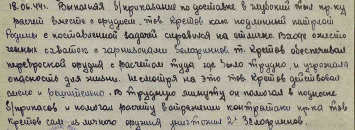 18.06.44г. Выполняя б/приказание по доставке в глубокий тыл пр-ку
расчет вместе с орудием, тов. Кретов как подлинный патриот
Родины с поставленной задачей справился на отлично. В ходе ожесто
ченных схваток с гарнизонами белофиннов т. Кретов обеспечивал
переброской орудия с расчетом туда где было трудно, и угрожала
опасность для жизни. Несмотря на это тов. Кретов действовал
смело и решительно. В трудную минуту он помогал в подноске
б/припасов и помогал расчету в отражении контратаки пр-ка тов
Кретов сам из личного оружия уничтожил 2х белофиннов.